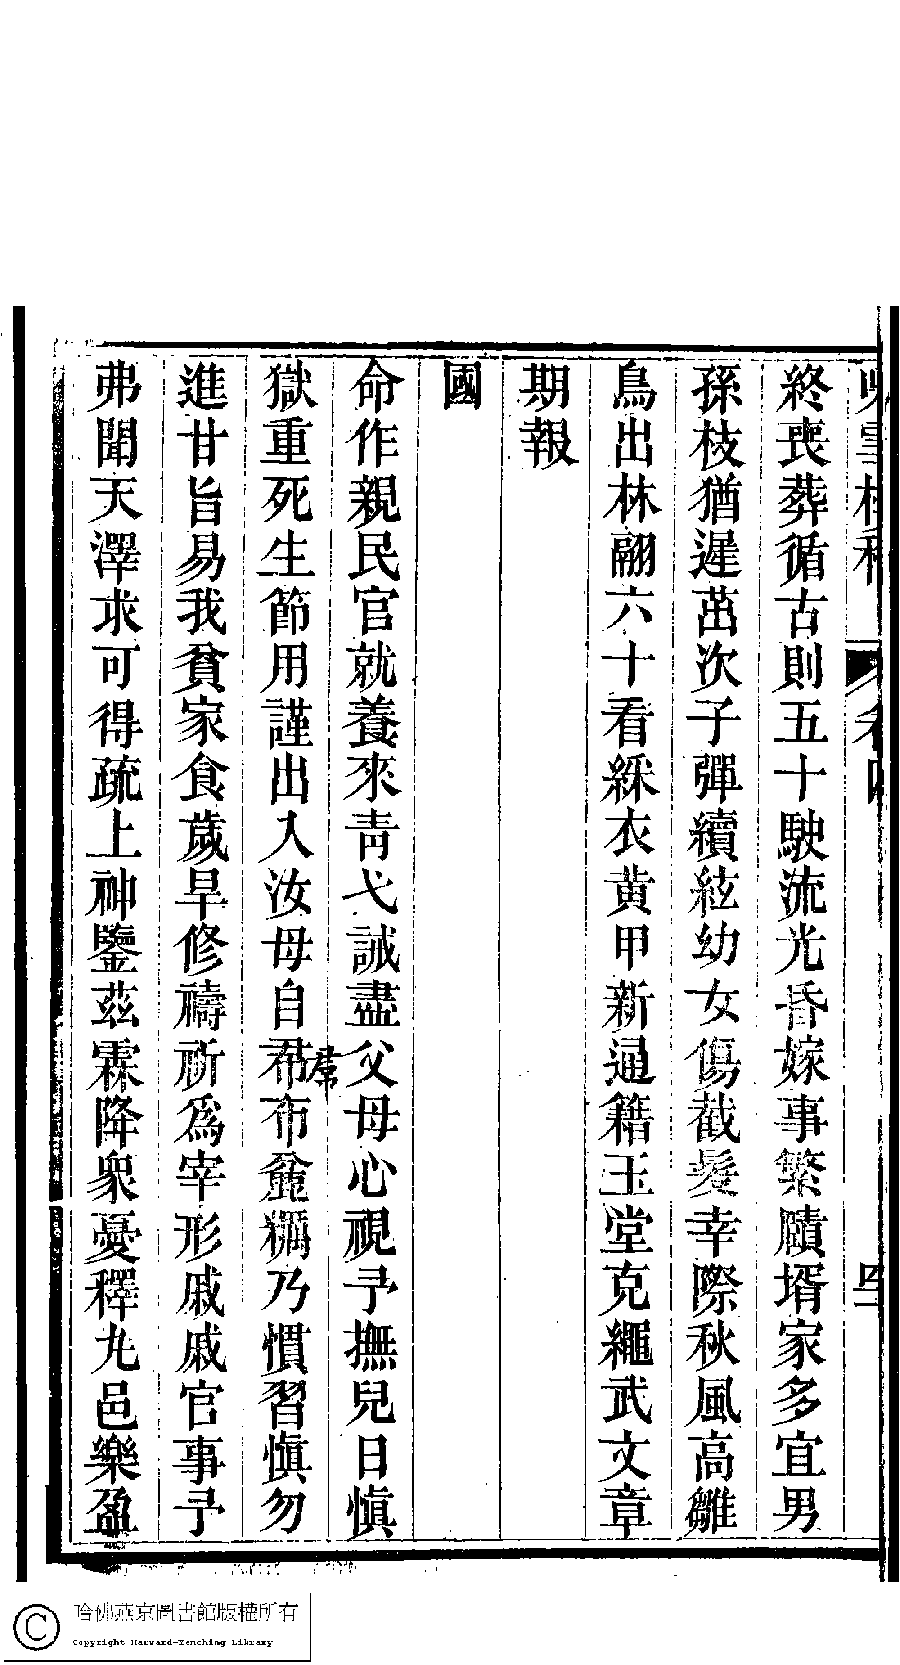 終喪葬循古則五十駛流光昏嫁事繁賾壻家多宜男
孫枝猶遲茁次子彈續絃幼女傷截髮幸際秋風高雛
鳥出林翮六十看綵衣黄甲新通籍玉堂克繩武文章
期報
國
命作親民官就養來青弋誡盡父母心視予撫兒日慎
獄重死生節用謹出入汝母自帬布麄糲乃慣習愼勿
席
進甘旨易我貧家食歲旱修禱祈爲宰形戚戚官事予
弗聞天澤求可得疏上神鑒茲霖降衆憂釋九邑樂盈
卷四
哈佛燕京圖書館版權所有
Copyright Harvard-Yenching Library